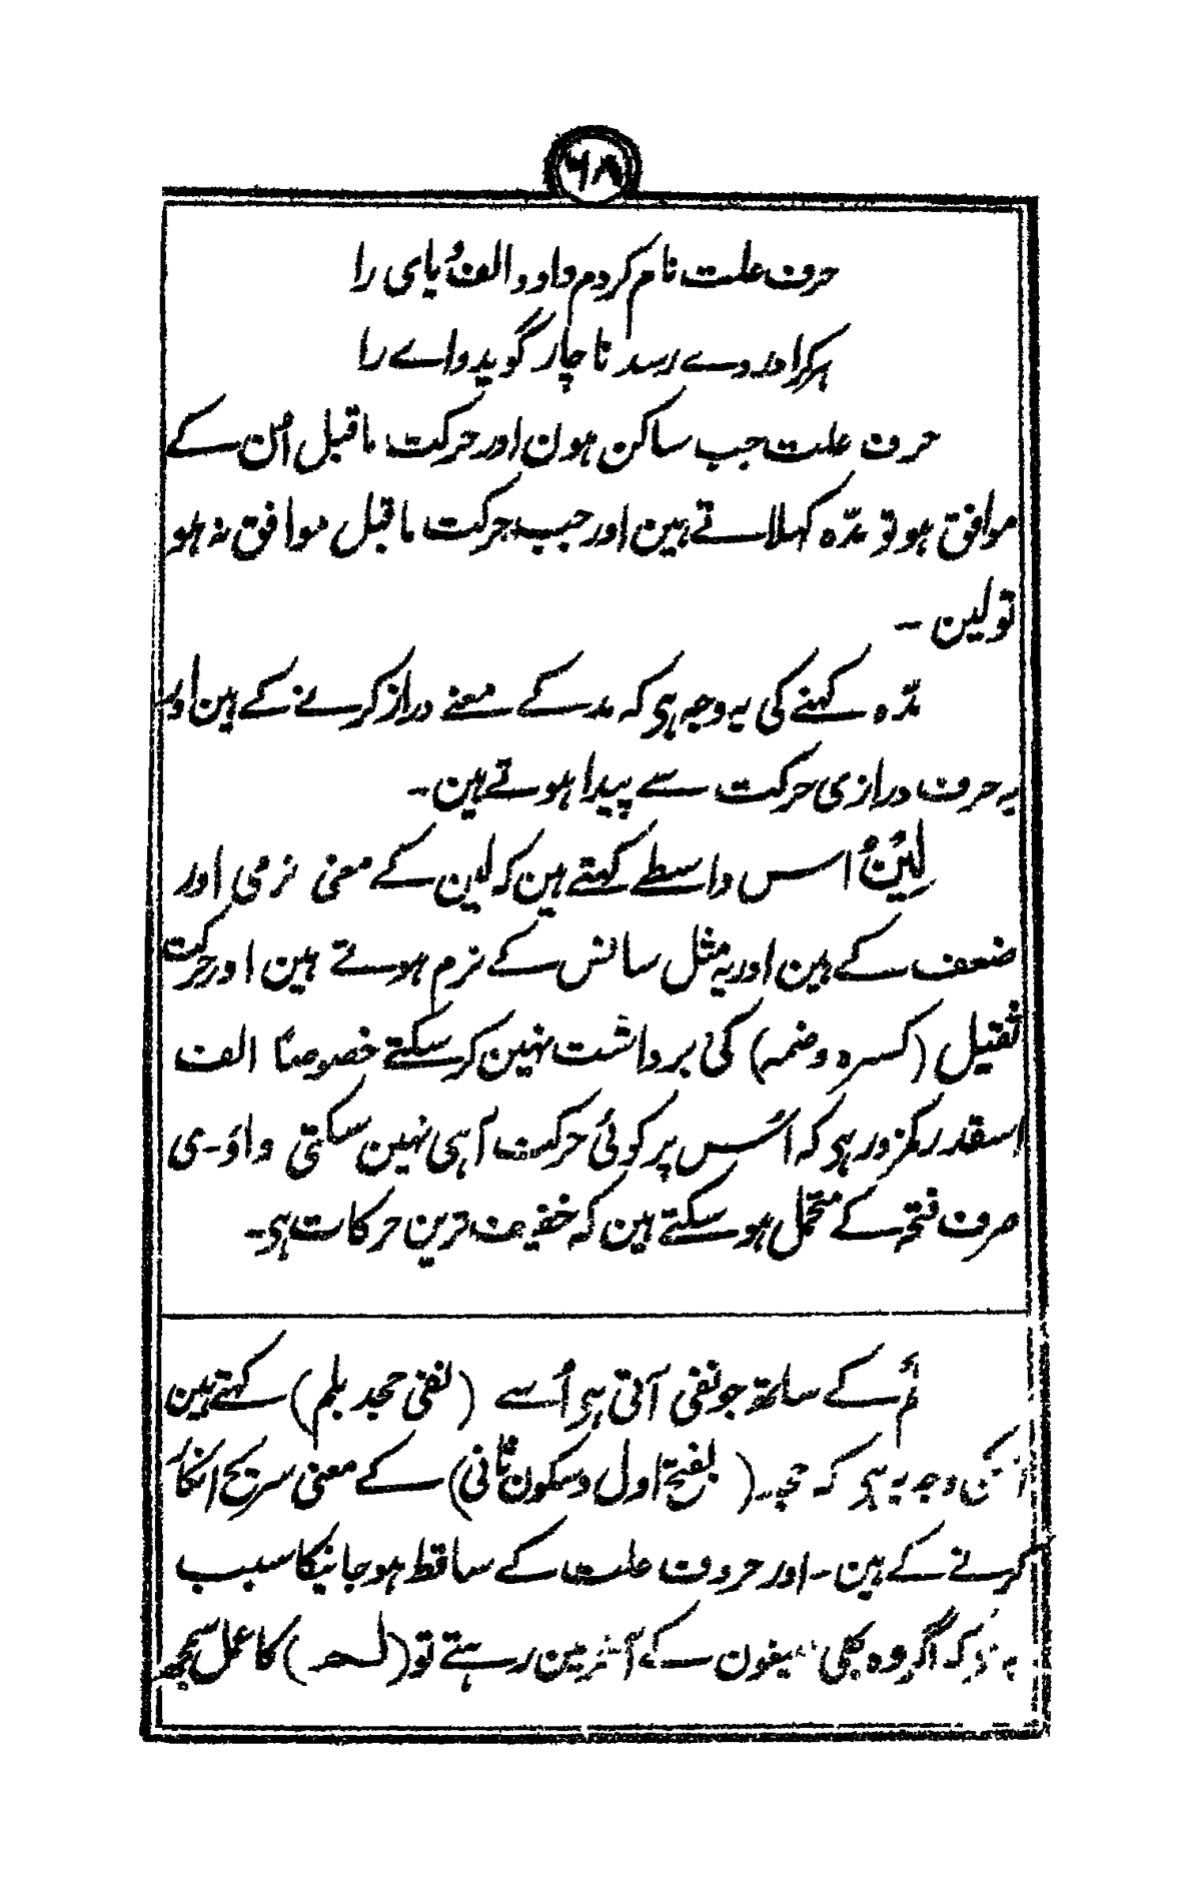 ۶۸
حرف علت نام کردم واو و الف و یای را
ہرکرا دردے رسد ناچار گوید وائے را
حرف علت جب ساکن ہون اور حرکت ماقبل اُن کے
موافق ہو تو مدّہ کہلاتے ہین اور جب حرکت ماقبل موافق نہ ہو
تو لین ۔
مدّہ کہنے کی یہ وجہ ہی کہ مد کے معنے دراز کرنے کے ہین اور
یہ حرف درازی حرکت سے پیدا ہوتے ہین۔
لِیْنٌ اس واسطے کہتے ہین کہ لین کے معنی نرمی اور
ضعف کے ہین اور یہ مثل سانس کے نرم ہوتے ہین اور حرکت
ثقیل (کسرہ و ضمہ) کی برداشت نہین کرسکتے خصوصاً الف
اسقدر کمزور ہی کہ اُس پر کوئی حرکت آہی نہین سکتی واؤ۔ی
صرف فتحہ کے متحمل ہو سکتے ہین کہ خفیف ترین حرکات ہی۔
لَمْ کے ساتھ جو نفی آتی ہی اُسے (نفی جحد بلم) کہتے ہین
وجہ یہ ہی کہ جحد (بفتح اول وسکون ثانی) کے معنی صریح انکار
کرنے کے ہین ۔ اور حروف علت کے ساقط ہوجانیکا سبب
یہ کہ اگر وہ صیغون کے آخر مین رہتے تو (لم) کا عمل سمجھ